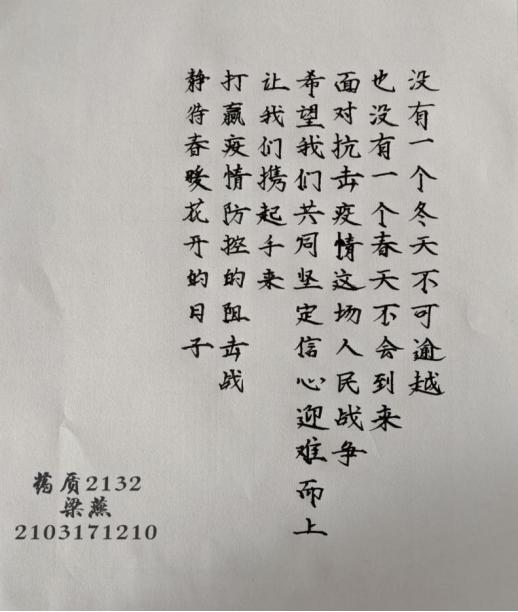 没有一个冬天不可逾越
也没有一个春天不会到来
面对抗击疫情这场人民战争
希望我们共同坚定信心迎难而上
让我们携起手来
打赢疫情防控的阻击战
静待春暖花开的日子
药质2132
梁燕
2103171210